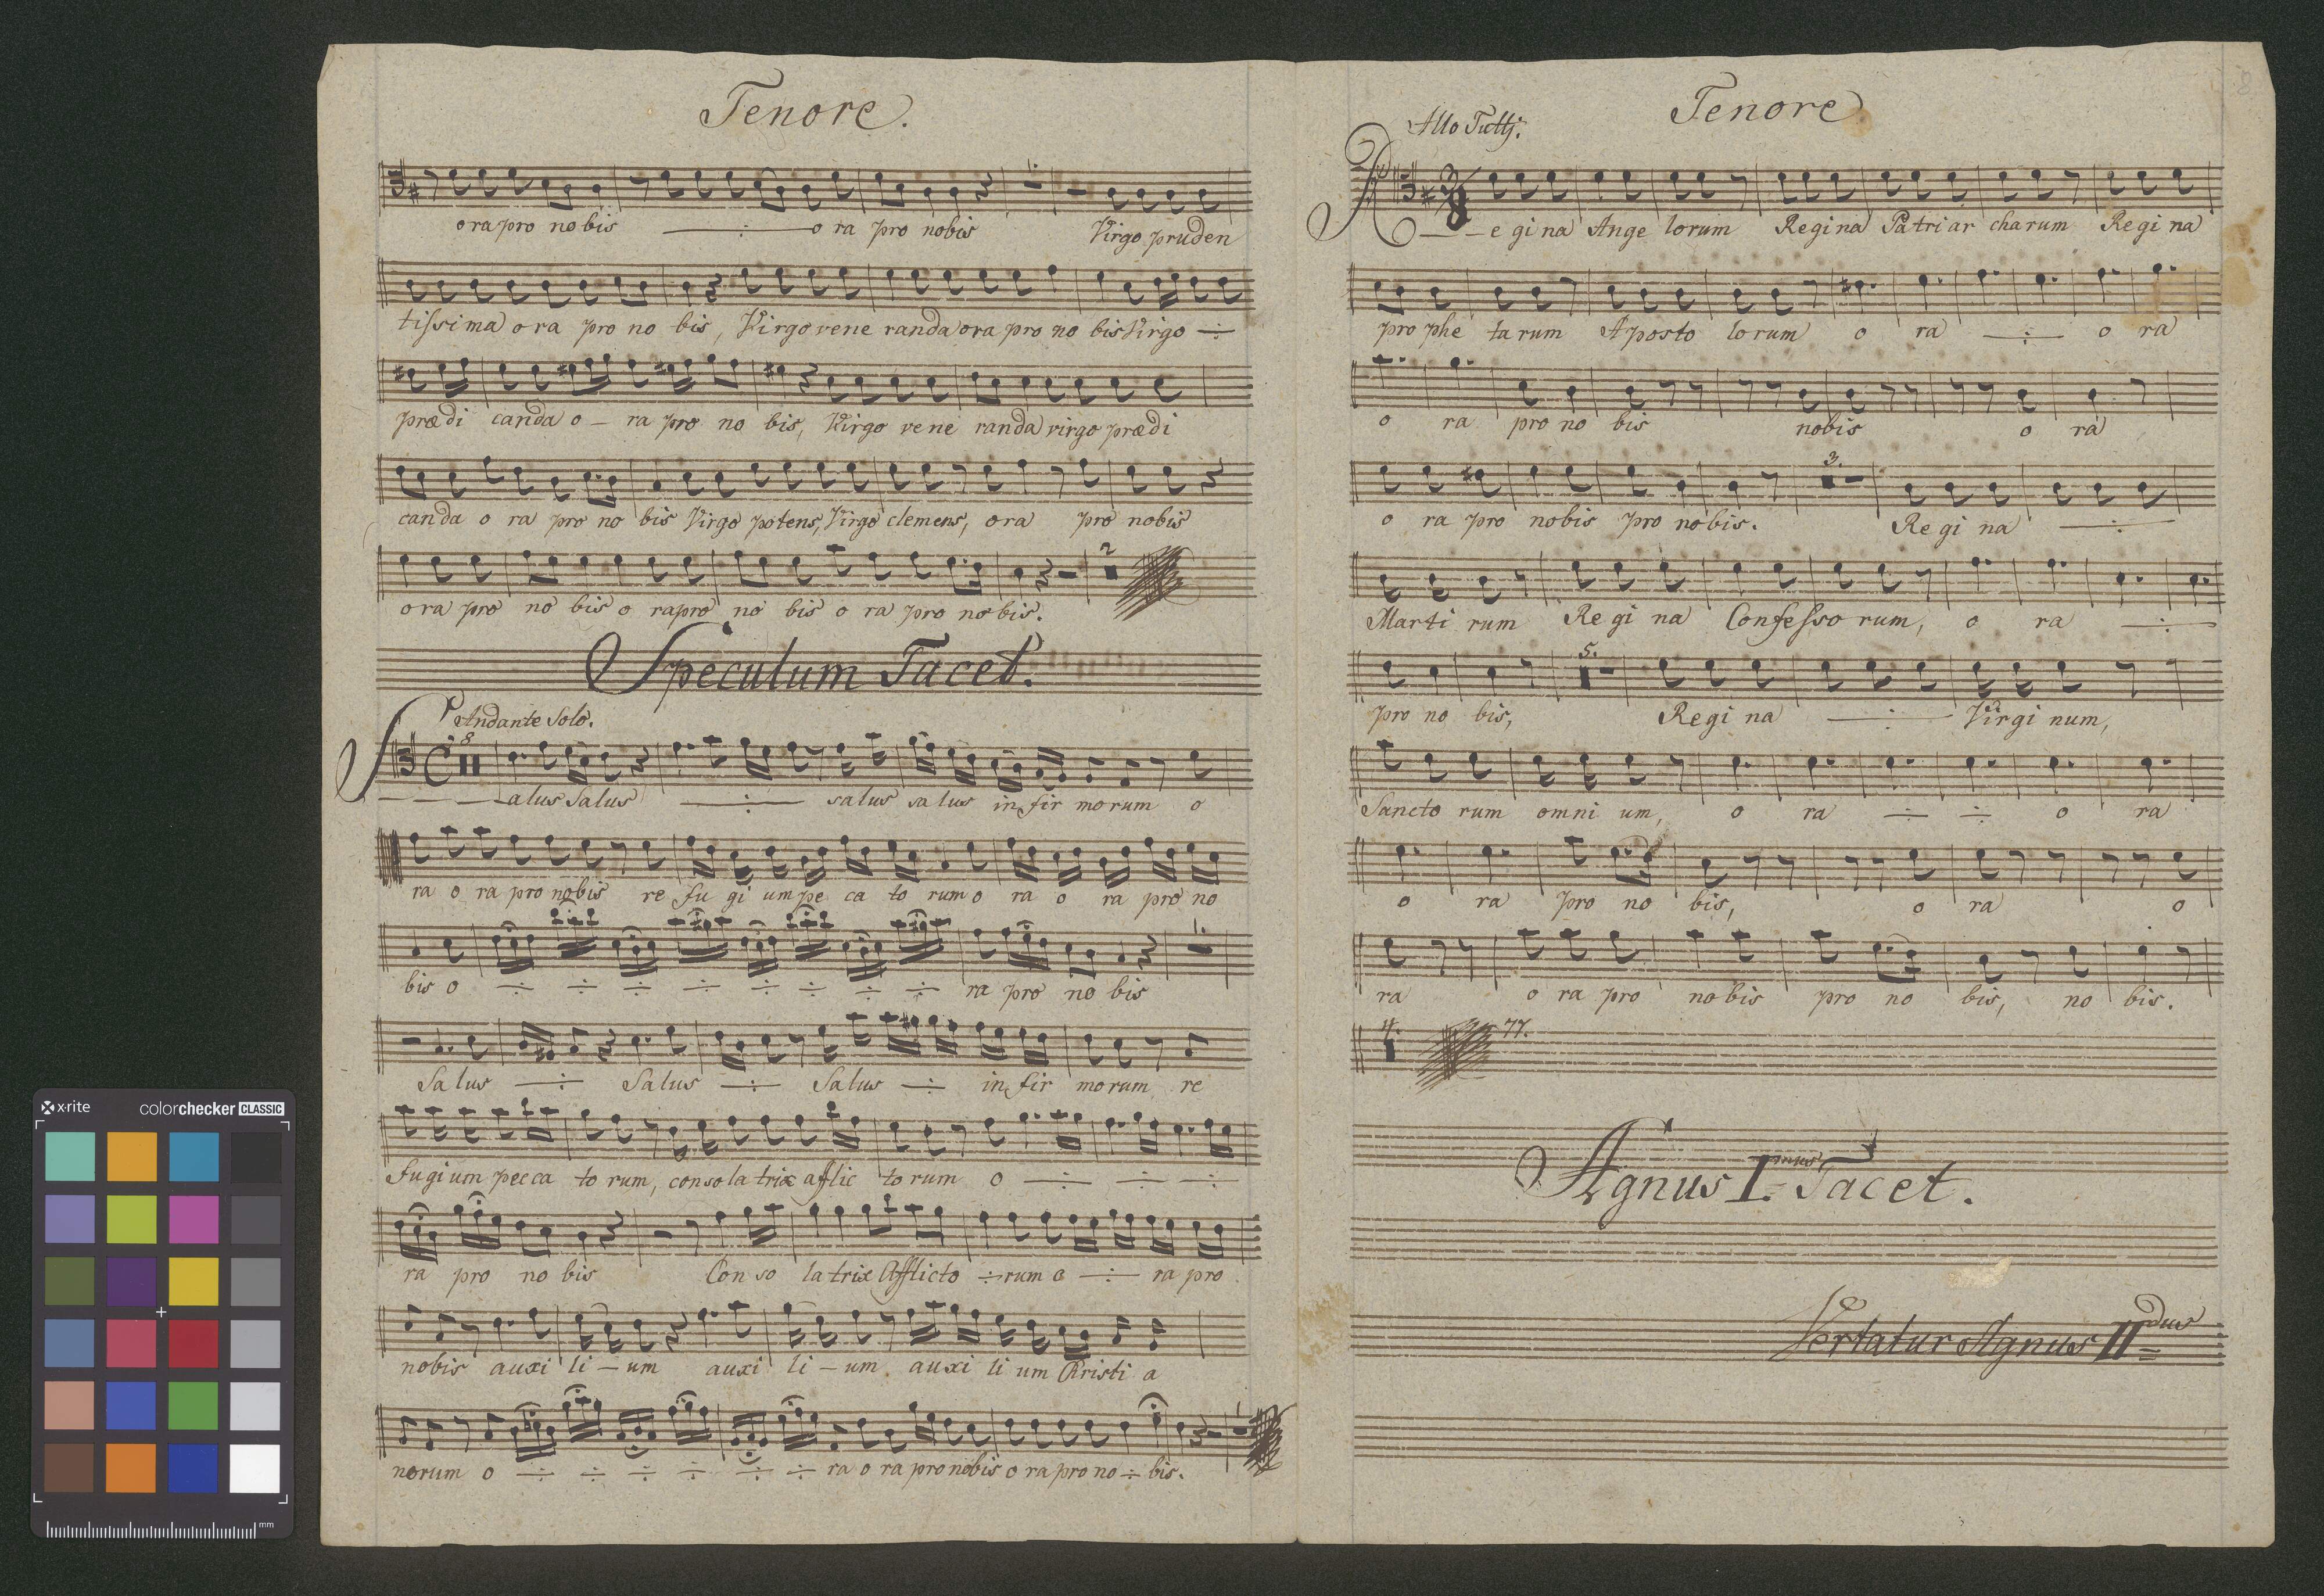 Tenore.
ora pro nobis ÷ o ra pro nobis Virgo pruden
tissima o ra pro no bis, Virgo vene randa ora pro no bis Virgo ÷
prædi canda o – ra pro no bis, Virgo ve ne randa virgo prædi
canda o ra pro no bis Virgo potens, Virgo clemens, ora pro nobis
ora pro no bis o rapro no bis o ra pro no bis.
2
Speculum Tacet.
Andante Solo.
8
Salus Salus ÷ salus sa lus in fir morum o
ra o ra pro nobis re fu gi um pe ca to rum o ra o ra pro no
bis o ÷ ÷ ÷ ÷ ÷ ÷ ÷ ÷ ra pro no bis
Salus ÷ Salus ÷ Salus ÷ in fir morum re
fugium pecca to rum, consola trix aflic to rum o ÷ ÷ ÷
ra pro no bis Con so la trix Afflicto ÷ rum o ÷ ra pro
nobis auxi li – um auxi li – um auxi li um Christi a
norum o ÷ ÷ ÷ ÷ ÷ ÷ ra o ra pro nobis o ra pro no ÷ bis.
Tenore
Allo Tutti.
3/8
Regina Ange lorum Regina Patriar charum Regi na
pro phe tarum Aposto lorum o ra ÷ o ra
o ra pro no bis nobis o ra
3.
o ra pro nobis pro nobis. Regi na ÷
Marti rum Regi na Confesso rum, o ra ÷
5.
pro no bis, Regi na ÷ Virgi num,
Sancto rum omni um, o ra ÷ ÷ o ra
o ra pro no bis, o ra o
ra o ra pro nobis pro no bis, no bis.
4. 77.
Agnus I.mus Tacet.
Vertatur Agnus IIdus
8
x·rite colorchecker CLASSIC
mm